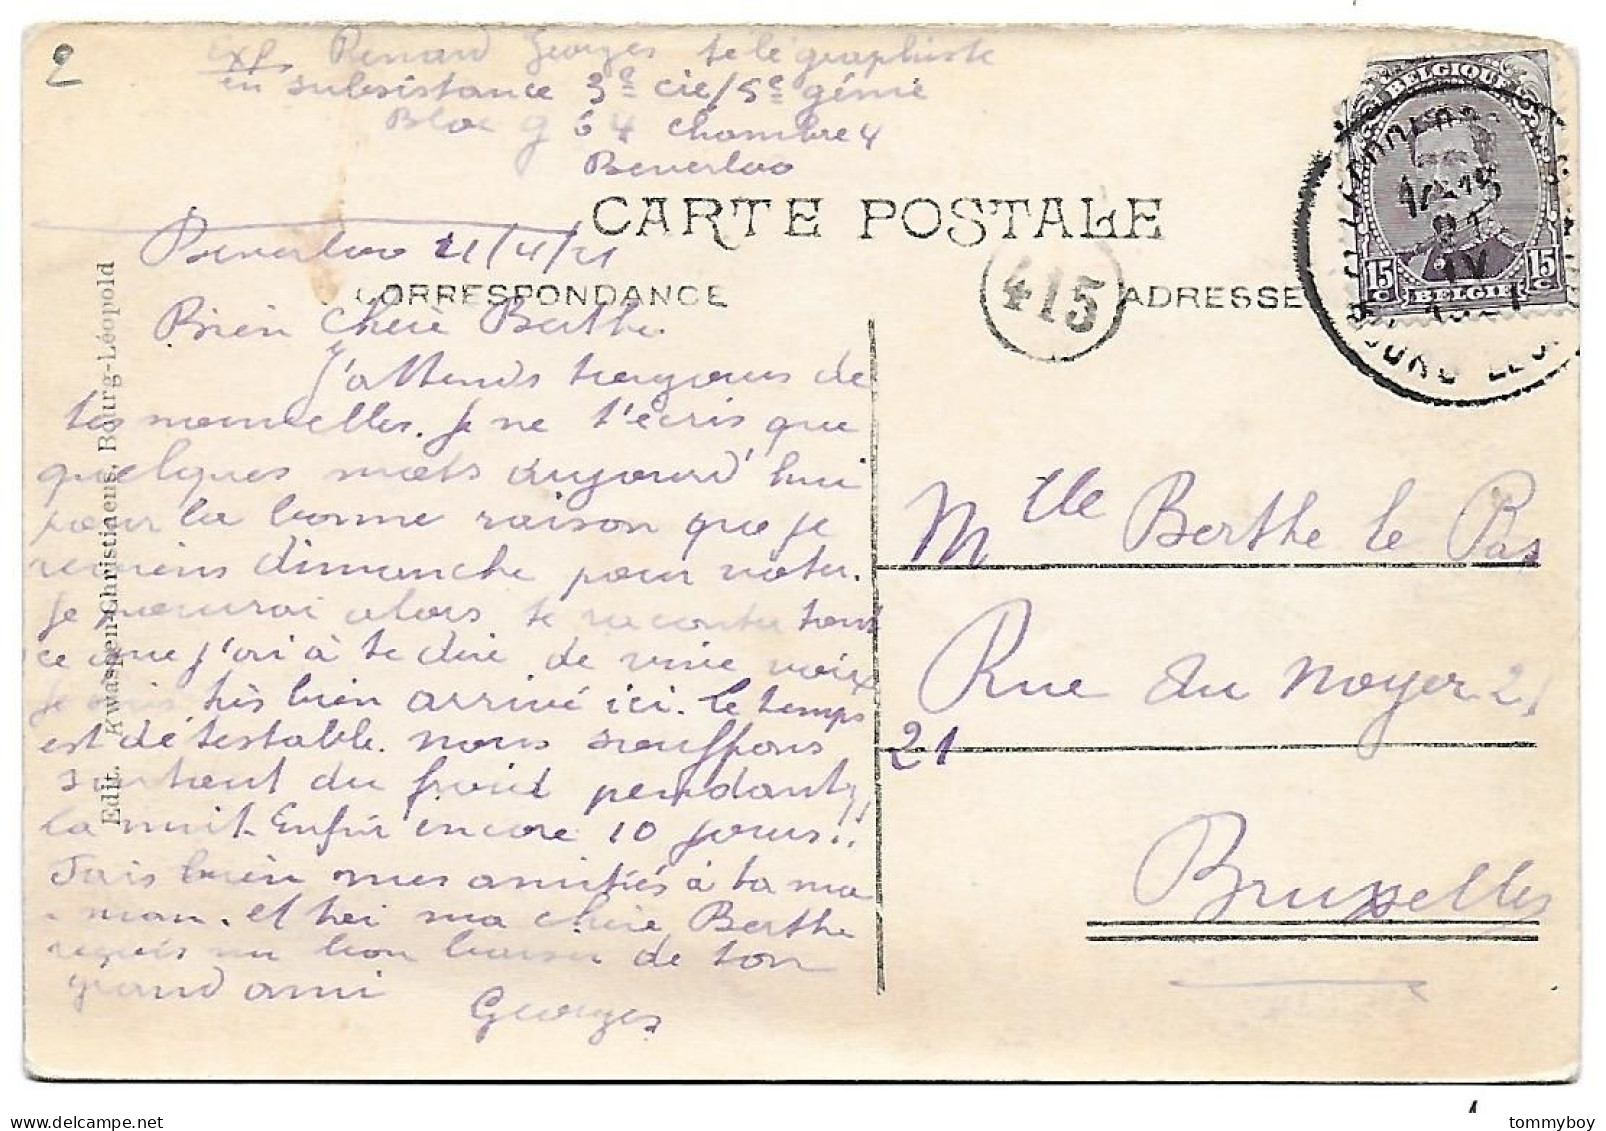 2
Exp Renard Georges télégraphiste
en subsistance 3e cie/5e génie
Bloc g 64 chambre 4
Beverloo
CARTE POSTALE
Beverloo 21/4/21
CORRESPONDANCE
415
ADRESSE
BELGIQUE
15 c 15 c
BELGIE
BOURG LEO
Edit. Kwaspen-Christiaens, Bourg-Léopold
Bien chère Berthe.
J'attends toujours de
tes nouvelles. Je ne t'écris que
quelques mots aujourd'hui
pour la bonne raison que je
reviens dimanche pour voter.
Je pourrai alors te raconter tout
ce que j'ai à te dire de vive voix
Je suis très bien arrivé ici. le temps
est détestable. nous souffrons
surtout du froid pendant
la nuit. Enfin encore 10 jours!!
Fais bien mes amitiés à ta ma
- man. et toi ma chère Berthe
reçois un bon baiser de ton
grand ami
Georges
Mlle Berthe le Pas
Rue du Noyer 21
21
Bruxelles
tommyboy